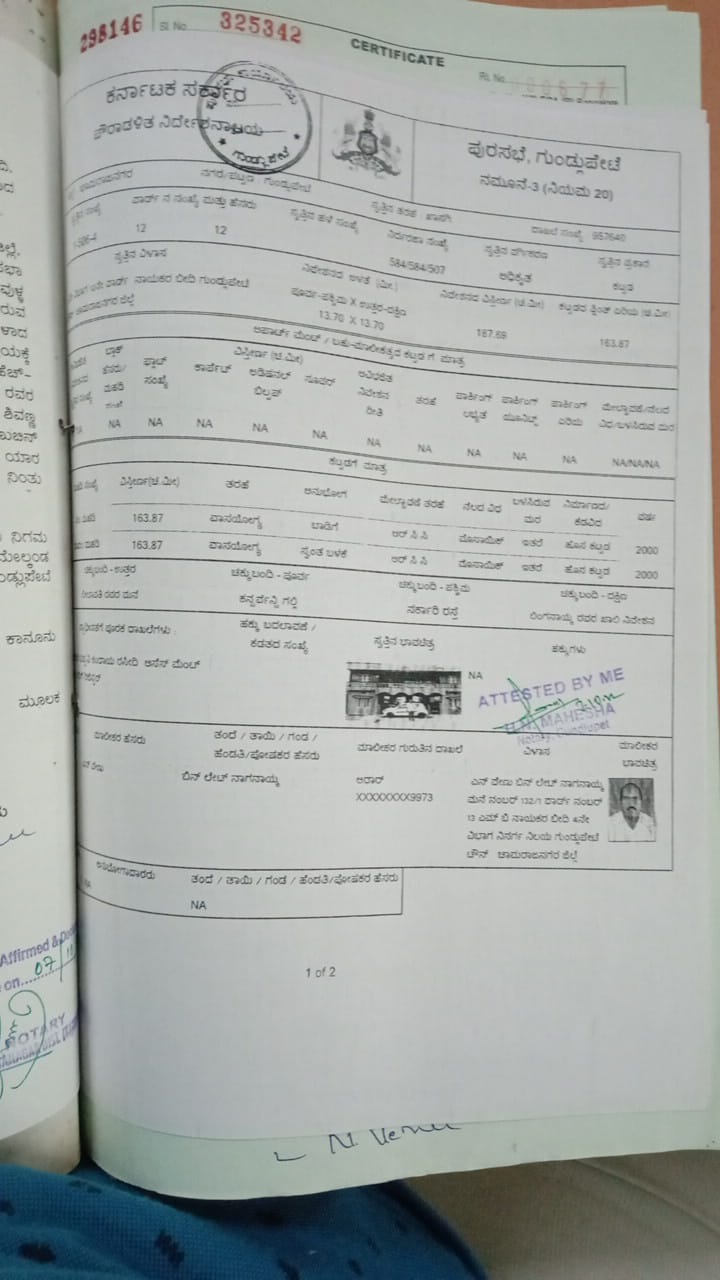 298146
Sl. No. 325342
CERTIFICATE
ಕರ್ನಾಟಕ ಸರ್ಕಾರ
ಪೌರಾಡಳಿತ ನಿರ್ದೇಶನಾಲಯ
ಗುಂಡ್ಲುಪೇಟೆ
ಪುರಸಭೆ, ಗುಂಡ್ಲುಪೇಟೆ
ನಮೂನೆ-3 (ನಿಯಮ 20)
ಚಾಮರಾಜನಗರ
ನಗರ/ಪಟ್ಟಣ : ಗುಂಡ್ಲುಪೇಟೆ
ಸ್ವತ್ತಿನ ತರಹೆ : ಖಾಸಗಿ
ದಾಖಲೆ ಸಂಖ್ಯೆ 957640
ಸ್ವತ್ತಿನ ಸಂಖ್ಯೆ ವಾರ್ಡ್ ನ ಸಂಖ್ಯೆ ಮತ್ತು ಹೆಸರು ಸ್ವತ್ತಿನ ಹಳೆ ಸಂಖ್ಯೆ ನಿರ್ಧರಣಾ ಸಂಖ್ಯೆ ಸ್ವತ್ತಿನ ವರ್ಗೀಕರಣ ಸ್ವತ್ತಿನ ಪ್ರಕಾರ
1-506-4 12 12 584/584/507 ಅಧಿಕೃತ ಕಟ್ಟಡ
ಸ್ವತ್ತಿನ ವಿಳಾಸ ನಿವೇಶನದ ಅಳತೆ (ಮೀ.) ನಿವೇಶನದ ವಿಸ್ತೀರ್ಣ (ಚ.ಮೀ) ಕಟ್ಟಡದ ಪ್ಲಿಂತ್ ಏರಿಯ (ಚ.ಮೀ)
ವಾರ್ಡ್ ನಾಯಕರ ಬೀದಿ ಗುಂಡ್ಲುಪೇಟೆ ಪೂರ್ವ-ಪಶ್ಚಿಮ X ಉತ್ತರ-ದಕ್ಷಿಣ
ಚಾಮರಾಜನಗರ ಜಿಲ್ಲೆ 13.70 X 13.70 187.69 163.87
ಅಪಾರ್ಟ್ ಮೆಂಟ್ / ಬಹು-ಮಾಲೀಕತ್ವದ ಕಟ್ಟಡ ಗೆ ಮಾತ್ರ
ಬ್ಲಾಕ್ ವಿಸ್ತೀರ್ಣ (ಚ.ಮೀ) ಅವಿಭಜಿತ
ಹೆಸರು/ ಫ್ಲಾಟ್ ಕಾರ್ಪೆಟ್ ಅಡಿಷನಲ್ ಸೂಪರ್ ನಿವೇಶನ ತರಹೆ ಪಾರ್ಕಿಂಗ್ ಪಾರ್ಕಿಂಗ್ ಪಾರ್ಕಿಂಗ್ ಮೇಲ್ಛಾವಣಿ/ನೆಲದ
ಮಹಡಿ ಸಂಖ್ಯೆ ಬಿಲ್ಟಪ್ ರೀತಿ ಲಭ್ಯತೆ ಯೂನಿಟ್ಸ್ ಏರಿಯ ವಿಧ/ಬಳಸಿರುವ ಮರ
ಸಂಖ್ಯೆ
NA NA NA NA NA NA NA NA NA NA NA/NA/NA
ಕಟ್ಟಡಗೆ ಮಾತ್ರ
ವಿಸ್ತೀರ್ಣ(ಚ.ಮೀ) ತರಹೆ ಅನುಭೋಗ ಮೇಲ್ಛಾವಣಿ ತರಹೆ ನೆಲದ ವಿಧ ಬಳಸಿರುವ ಮರ ನಿರ್ಮಾಣದ/ ಕೆಡವಿದ ವರ್ಷ
163.87 ವಾಸಯೋಗ್ಯ ಬಾಡಿಗೆ ಆರ್ ಸಿ ಸಿ ಮೊಸಾಯಿಕ್ ಇತರೆ ಹೊಸ ಕಟ್ಟಡ 2000
163.87 ವಾಸಯೋಗ್ಯ ಸ್ವಂತ ಬಳಕೆ ಆರ್ ಸಿ ಸಿ ಮೊಸಾಯಿಕ್ ಇತರೆ ಹೊಸ ಕಟ್ಟಡ 2000
ಚಕ್ಕುಬಂದಿ - ಉತ್ತರ ಚಕ್ಕುಬಂದಿ - ಪೂರ್ವ ಚಕ್ಕುಬಂದಿ - ಪಶ್ಚಿಮ ಚಕ್ಕುಬಂದಿ - ದಕ್ಷಿಣ
ರವರ ಮನೆ ಕನ್ಸರ್ವೆನ್ಸಿ ಗಲ್ಲಿ ಸರ್ಕಾರಿ ರಸ್ತೆ ಲಿಂಗನಾಯ್ಕ ರವರ ಖಾಲಿ ನಿವೇಶನ
ಪೂರಕ ದಾಖಲೆಗಳು : ಹಕ್ಕು ಬದಲಾವಣೆ / ಸ್ವತ್ತಿನ ಭಾವಚಿತ್ರ ಹಕ್ಕುಗಳು
ಕಡತದ ಸಂಖ್ಯೆ
ಕಂದಾಯ ರಸೀದಿ ಅಸೆಸ್ ಮೆಂಟ್
NA
ATTESTED BY ME
H.N. MAHESHA
Notary, Gundlupet
ಮಾಲೀಕರ ಹೆಸರು ತಂದೆ / ತಾಯಿ / ಗಂಡ / ಮಾಲೀಕರ ಗುರುತಿನ ದಾಖಲೆ ವಿಳಾಸ ಮಾಲೀಕರ
ಹೆಂಡತಿ/ಪೋಷಕರ ಹೆಸರು ಭಾವಚಿತ್ರ
ಎನ್ ವೇಣು ಬಿನ್ ಲೇಟ್ ನಾಗನಾಯ್ಕ ಆಧಾರ್ ಎನ್ ವೇಣು ಬಿನ್ ಲೇಟ್ ನಾಗನಾಯ್ಕ
XXXXXXXX9973 ಮನೆ ನಂಬರ್ 132/1 ವಾರ್ಡ್ ನಂಬರ್
13 ಎಮ್ ಬಿ ನಾಯಕರ ಬೀದಿ 4ನೇ
ವಿಭಾಗ ನಿಸರ್ಗ ನಿಲಯ ಗುಂಡ್ಲುಪೇಟೆ
ಟೌನ್ ಚಾಮರಾಜನಗರ ಜಿಲ್ಲೆ
ಅನುಭೋಗದಾರರು ತಂದೆ / ತಾಯಿ / ಗಂಡ / ಹೆಂಡತಿ/ಪೋಷಕರ ಹೆಸರು
NA NA
1 of 2
N. Venu
ರವರ
ಶಿವಣ್ಣ
ಯಾರ
ನಿಂತು
ನಿಗಮ
ಮೇಲ್ಕಂಡ
ಕಾನೂನು
ಮೂಲಕ
Affirmed &
on
NOTARY